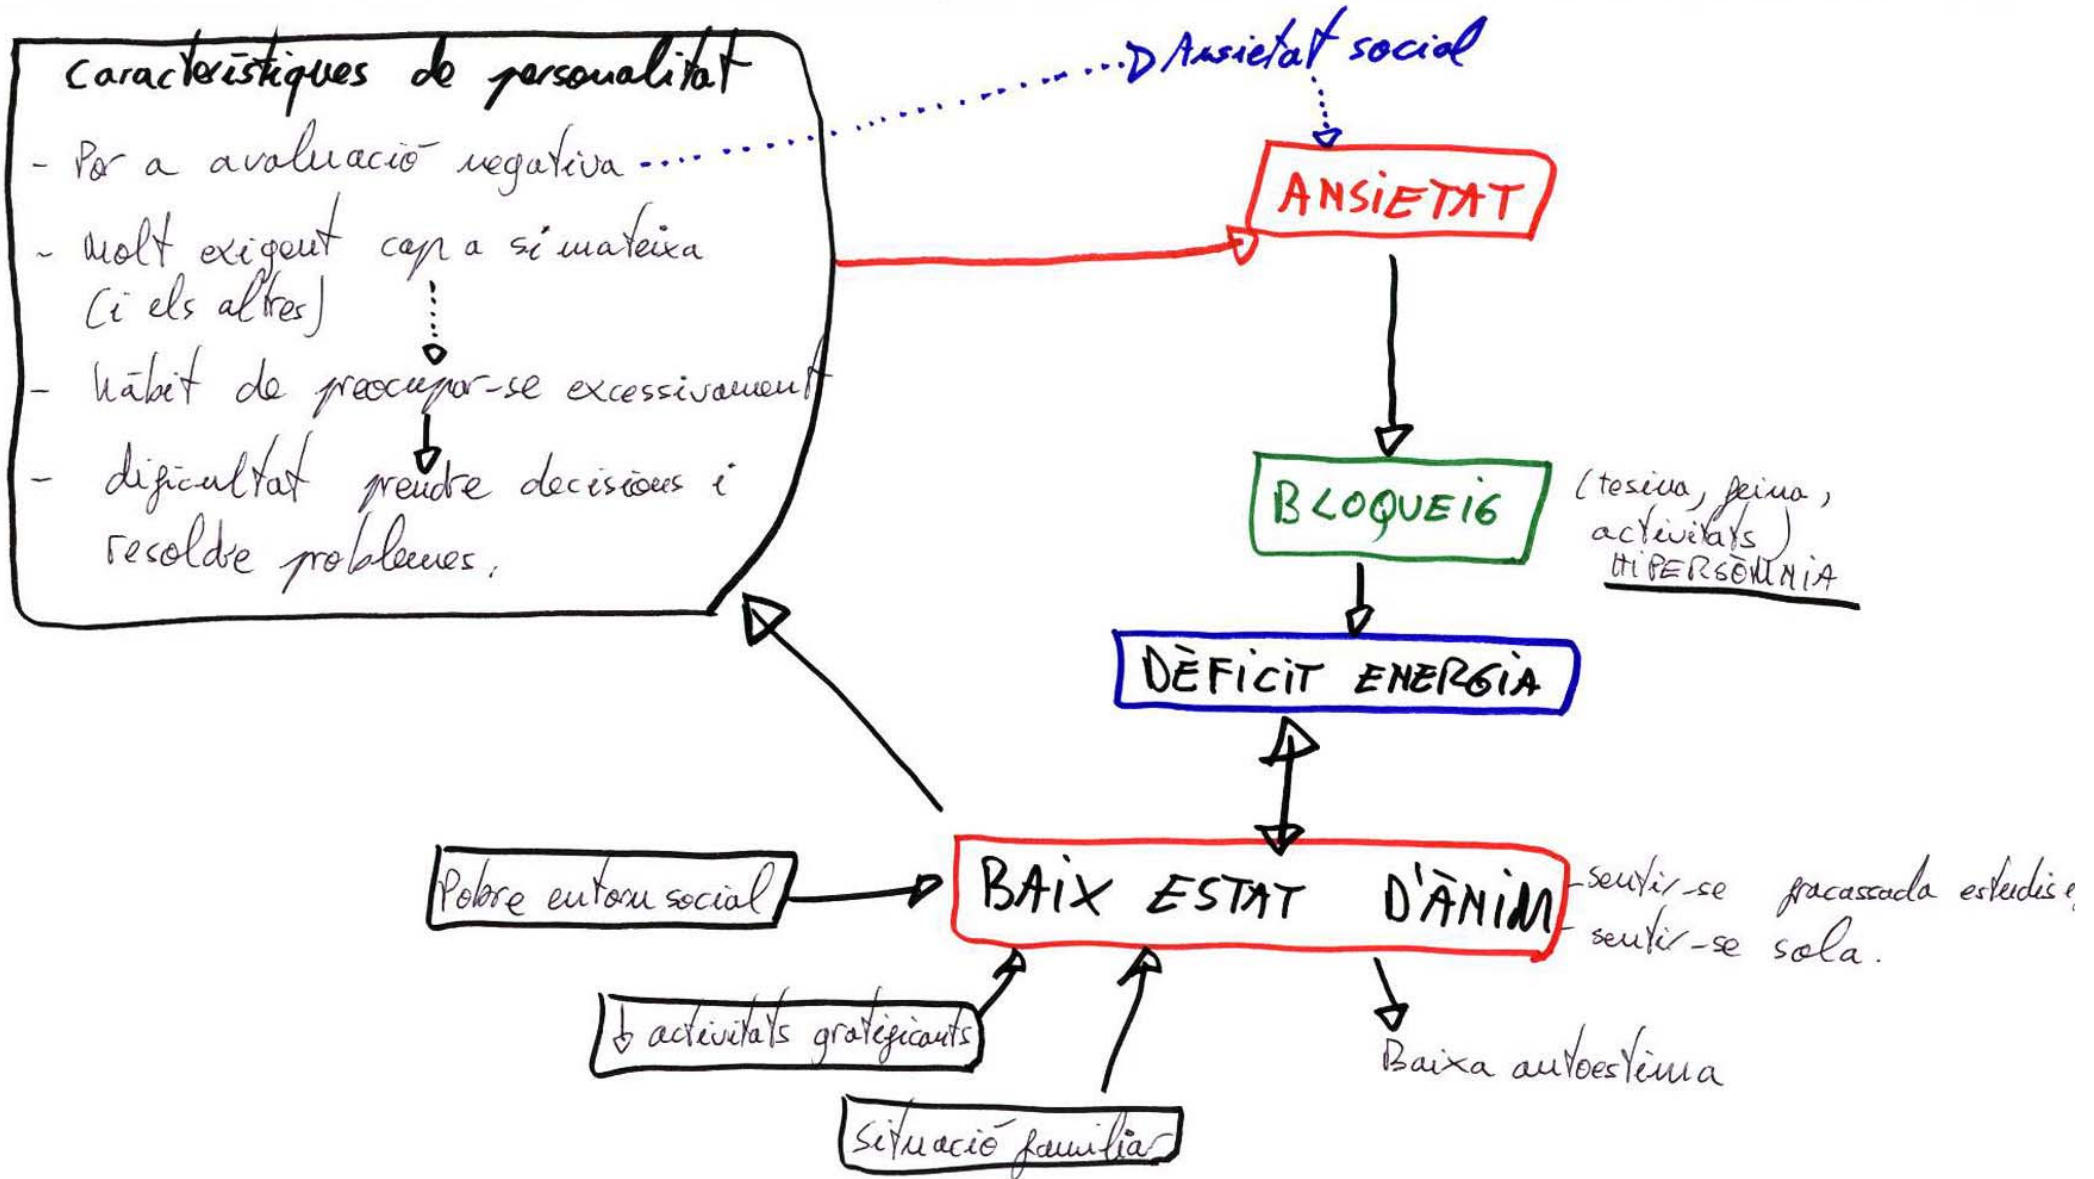 Característiques de personalitat
- Por a avaluació negativa
- Molt exigent cap a si mateixa
(i els altres)
- hàbit de preocupar-se excessivament
- dificultat prendre decisions i
resoldre problemes.
Ansietat social
ANSIETAT
BLOQUEIG
(tesina, feina,
activitats)
HIPERSÒMNIA
DÈFICIT ENERGIA
Pobre entorn social
BAIX ESTAT D'ÀNIM
- sentir-se fracassada estudis
- sentir-se sola.
↓ activitats gratificants
Situació familiar
Baixa autoestima